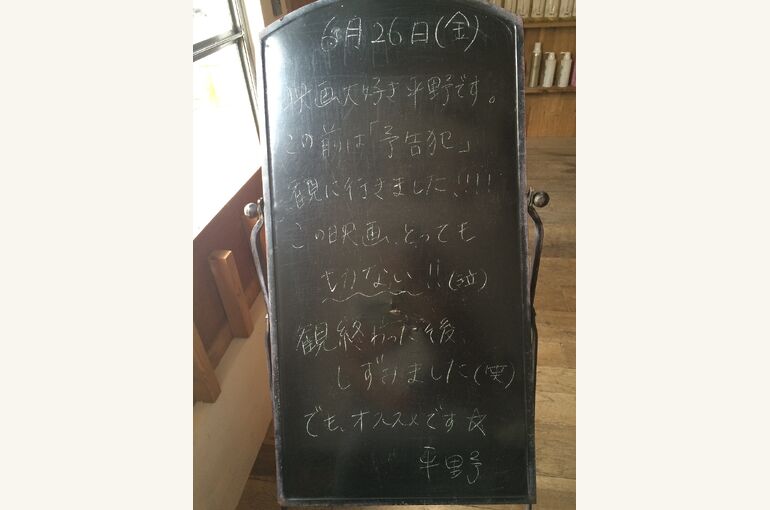 6月26日(金)
映画大好き平野です。
この前は「予告犯」
観に行きました!!!!
この映画、とっても
せつない!!(泣)
観終わった後、
しずみました(笑)
でも、オススメです☆
平野